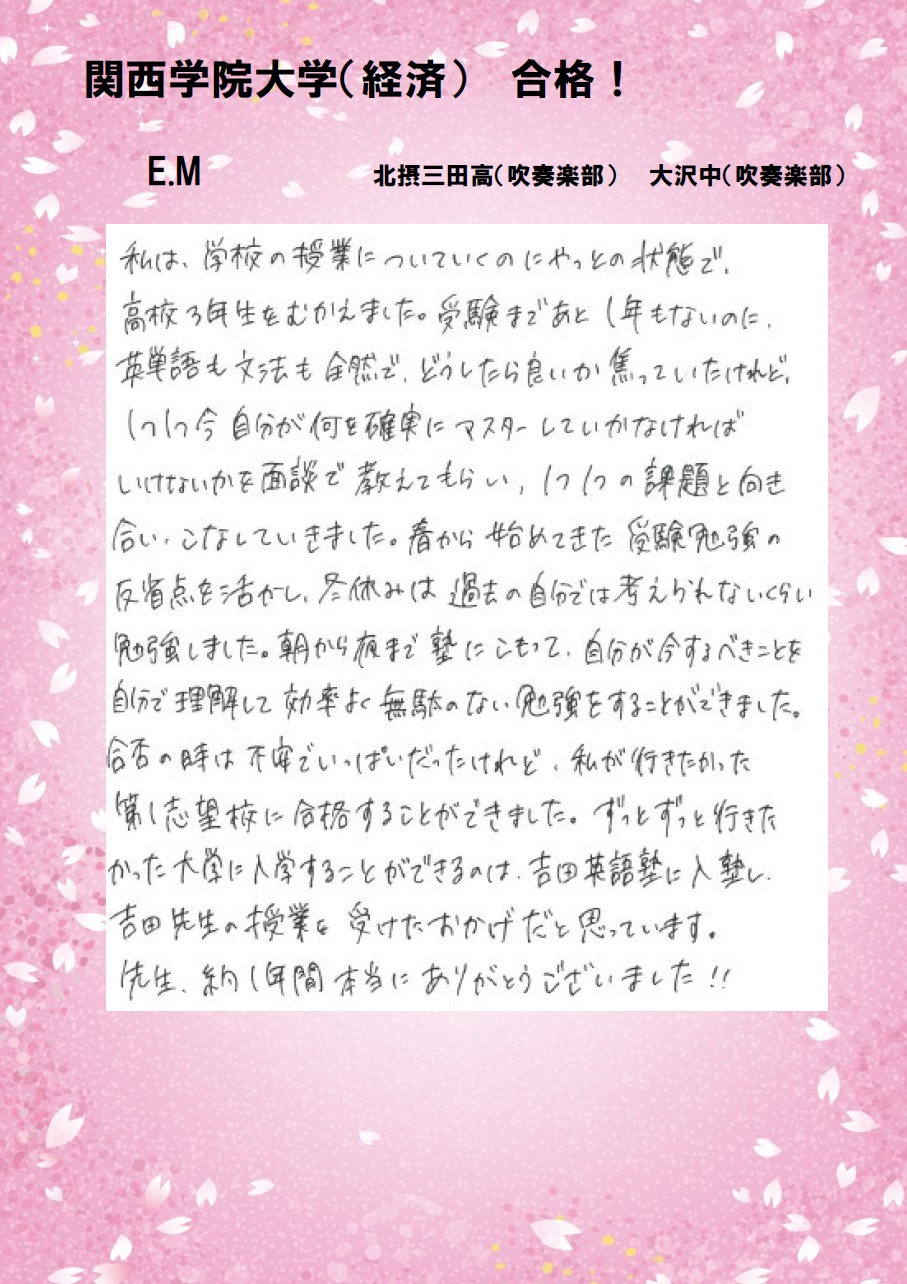 関西学院大学(経済) 合格！
E.M 北摂三田高(吹奏楽部) 大沢中(吹奏楽部)
私は、学校の授業についていくのにやっとの状態で、
高校3年生をむかえました。受験まであと1年もないのに、
英単語も文法も全然で、どうしたら良いか焦っていたけれど、
1つ1つ今自分が何を確実にマスターしていかなければ
いけないかを面談で教えてもらい、1つ1つの課題と向き
合い、こなしていきました。春から始めてきた受験勉強の
反省点を活かし、冬休みは過去の自分では考えられないくらい
勉強しました。朝から夜まで塾にこもって、自分が今するべきことを
自分で理解して効率よく無駄のない勉強をすることができました。
合否の時は不安でいっぱいだったけれど、私が行きたかった
第1志望校に合格することができました。ずっとずっと行きた
かった大学に入学することができるのは、吉田英語塾に入塾し、
吉田先生の授業を受けたおかげだと思っています。
先生、約1年間本当にありがとうございました!!